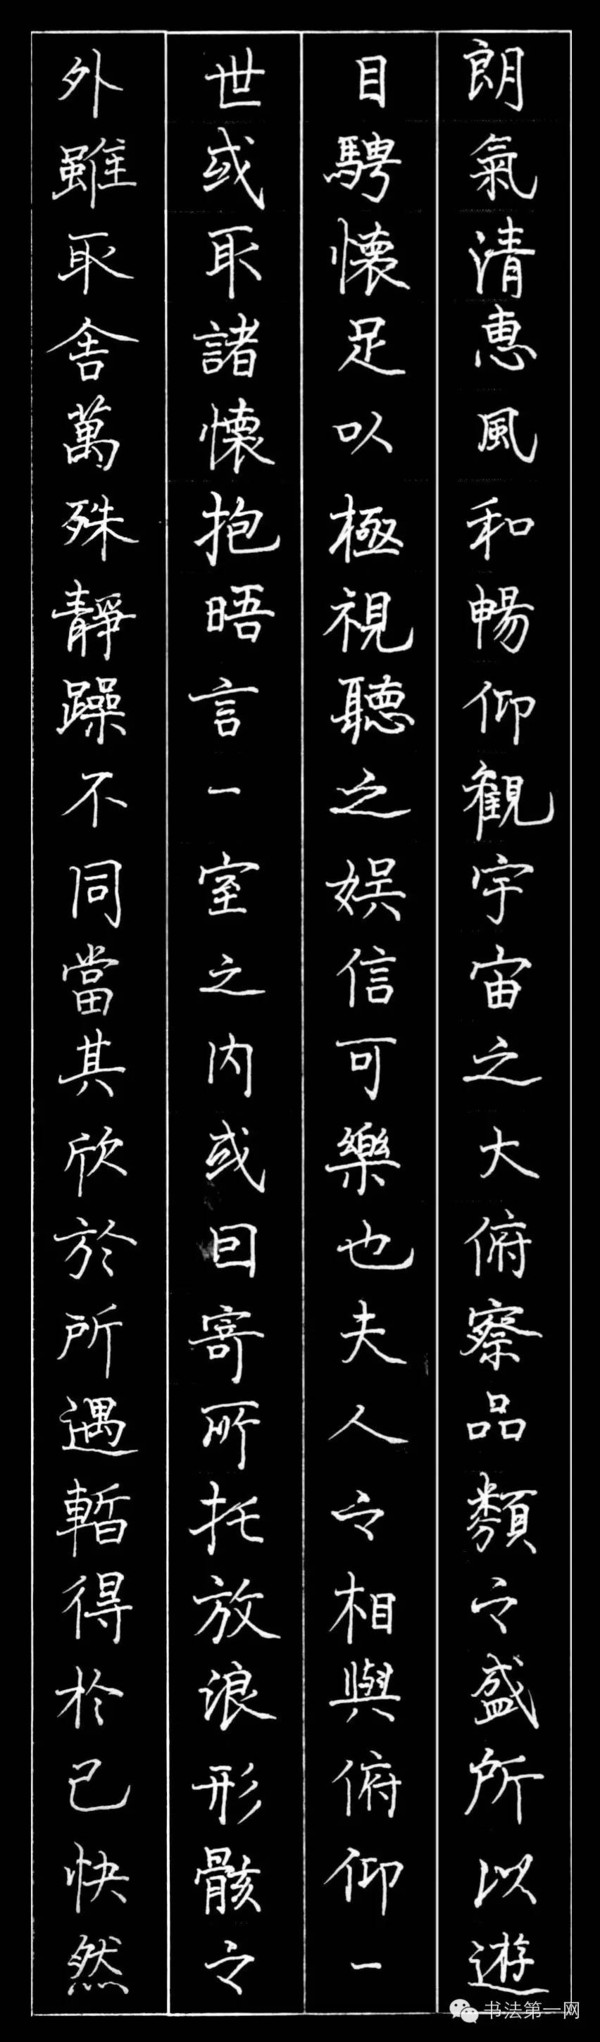 朗氣清惠風和暢仰觀宇宙之大俯察品類之盛所以遊
目騁懷足以極視聽之娛信可樂也夫人之相與俯仰一
世或取諸懷抱晤言一室之内或因寄所托放浪形骸之
外雖取舍萬殊靜躁不同當其欣於所遇暫得於己快然
书法第一网